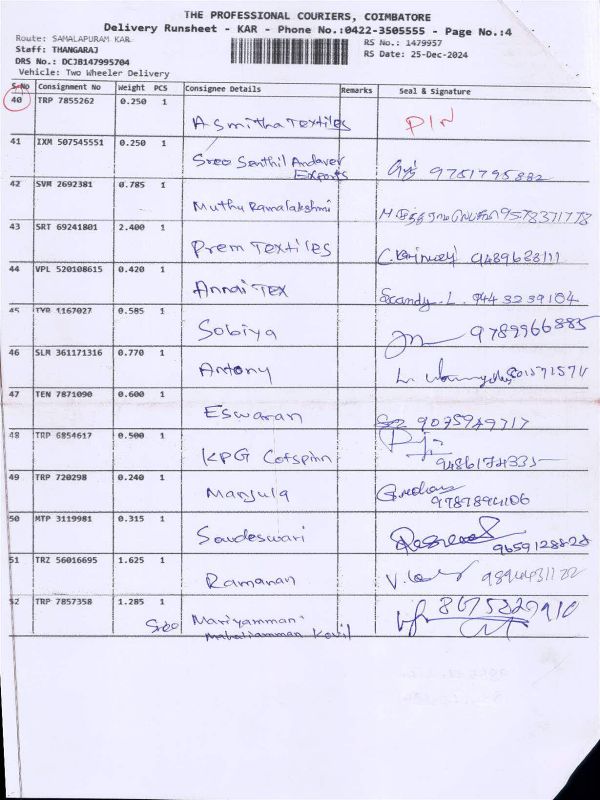 THE PROFESSIONAL COURIERS, COIMBATORE
Delivery Runsheet - KAR - Phone No.:0422-3505555 - Page No.:4
Route: SAMALAPURAM KAR
RS No.: 1479957
Staff: THANGARAJ
RS Date: 25-Dec-2024
DRS No.: DCJB147995704
Vehicle: Two Wheeler Delivery
S.No Consignment No Weight PCS Consignee Details Remarks Seal & Signature
40 TRP 7855262 0.250 1 Asmitha Textiles
41 IXM 507545551 0.250 1 Sree Senthil Andaver
Exports 9751795882
42 SVM 2692381 0.785 1 Muthu Ramalakshmi 9578371778
43 SRT 69241801 2.400 1 Prem Textiles
44 VPL 520108615 0.420 1 Annai Tex
45 TYR 1167027 0.585 1 Sobiya 9789966885
46 SLM 361171316 0.770 1 Antony
47 TEN 7871090 0.600 1 Eswaran
48 TRP 6854617 0.500 1 KPG Cotspinn
49 TRP 720298 0.240 1 Manjula
50 MTP 3119981 0.315 1 Soudeswari
51 TRZ 56016695 1.625 1 Ramanan
52 TRP 7857358 1.285 1 Sree Mariyamman
Mahaliamman Kovil